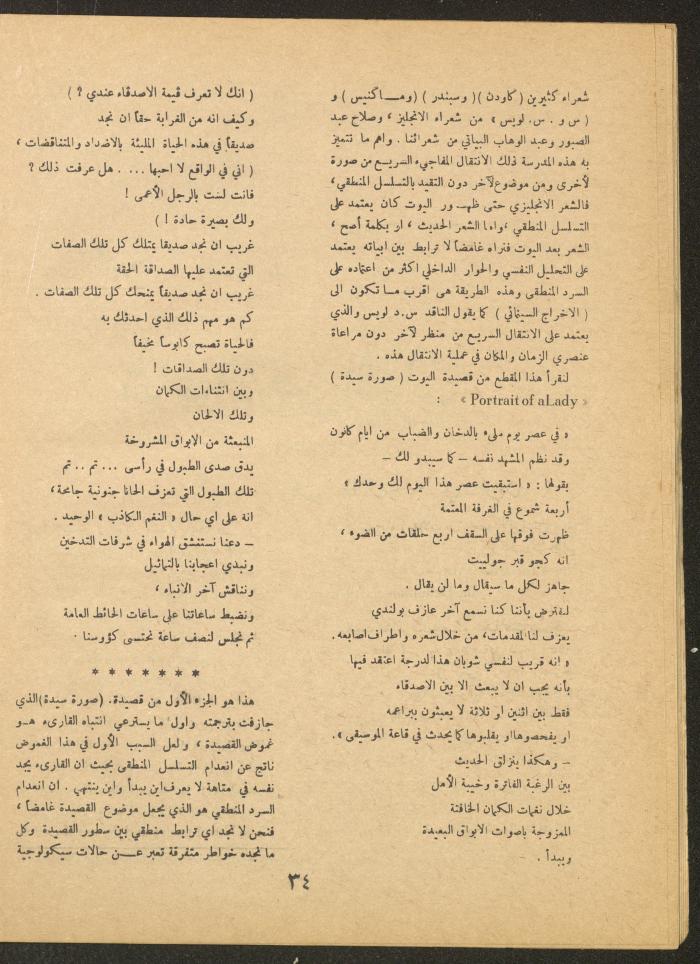 شعراء كثيرين ( كاودن )( وسبندر ) (ومــاكنيس ) و
( س . و . س. لويس » من شعراء الانجليز ، وصلاح عبد
الصبور وعبد الوهاب البياتي من شعرائنا . واهم ما تتميز
به هذه المدرسة ذلك الانتقال المفاجيء السريـع من صورة
لأخرى ومن موضوع لآخر دون التقيد بالتسلسل المنطقي،
فالشعر الانجليزي حتى ظهــور اليوت كان يعتمد على
التسلسل المنطقي ،واما الشعر الحديث ، او بكلمة أصح ،
الشعر بعد اليوت فنراه غامضاً لا ترابط بين ابياته يعتمد
على التحليل النفسي والحوار الداخلي اكثر من اعتماده على
السرد المنطقي وهذه الطريقة هي اقرب مــا تكون الى
( الاخراج السينمائي ) كما يقول الناقد س.د لويس والذي
يعتمد على الانتقال السريـع من منظر لآخر دون مراعاة
عنصري الزمان والمكان في عملية الانتقال هذه .
لنقرأ هذا المقطع من قصيدة اليوت ( صورة سيدة )
« Portrait of aLady » :
« في عصر يوم ملىء بالدخان والضباب من ايام كانون
وقد نظم المشهد نفسه – كما سيبدو لك –
بقولها : « استبقيت عصر هذا اليوم لك وحدك »
أربعة شموع في الغرفة المعتمة
ظهرت فوقها على السقف اربع حلقات من الضوء ،
انه كجو قبر جولييت
جاهز لكل ما سيقال وما لن يقال .
لنفترض بأننا كنا نسمع آخر عازف بولندي
يعزف لنا المقدمات، من خلال شعره واطراف اصابعه .
« انه قريب لنفسي شوبان هذا لدرجة اعتقد فيها
بأنه يجب ان لا يبعث الا بين الاصدقاء
فقط بين اثنين او ثلاثة لا يعبثون ببراعمه
او يفحصوها او يقلبوها كما يحدث في قاعة الموسيقى ».
– وهكذا ينزلق الحديث
بين الرغبة الفاترة وخيبة الأمل
خلال نغمات الكمان الخافتة
الممزوجة باصوات الابواق البعيدة
ويبدأ .
( انك لا تعرف قيمة الاصدقاء عندي ? )
وكيف انه من الغرابة حقاً ان نجد
صديقاً في هذه الحياة المليئة بالاضداد والمتناقضات ،
( اني في الواقع لا احبها .... هل عرفت ذلك ?
فانت لست بالرجل الأعمى !
ولك بصيرة حادة ! )
غريب ان نجد صديقا يمتلك كل تلك الصفات
التي تعتمد عليها الصداقة الحقة
غريب ان نجد صديقاً يمنحك كل تلك الصفات .
كم هو مهم ذلك الذي احدثك به
فالحياة تصبح كابوساً مخيفاً
دون تلك الصداقات !
وبين انثناءات الكمان
وتلك الالحان
المنبعثة من الابواق المشروخة
يدق صدى الطبول في رأسى ... تم .. تم
تلك الطبول التي تعزف الحانا جنونية جامحة،
انه على اي حال « النغم الكاذب » الوحيد .
– دعنا نستنشق الهواء في شرفات التدخين
ونبدي اعجابنا بالتماثيل
ونناقش آخر الانباء ،
ونضبط ساعاتنا على ساعات الحائط العامة
ثم نجلس لنصف ساعة نحتسى كؤوسنا .
* * * * * * *
هذا هو الجزء الأول من قصيدة. (صورة سيدة)الذي
جازفت بترجمته واول ما يسترعي انتباه القارىء هــو
غموض القصيدة ، ولعل السبب الأول في هذا الغموض
ناتج عن انعدام التسلسل المنطقى بحيث ان القارىء يجد
نفسه في متاهة لا يعرف اين يبدأ واين ينتهي . ان انعدام
السرد المنطقي هو الذي يجعل موضوع القصيدة غامضاً ،
فنحن لا نجد اي ترابط منطقي بين سطور القصيدة وكل
ما نجده خواطر متفرقة تعبر عـــن حالات سيكولوجية
٣٤